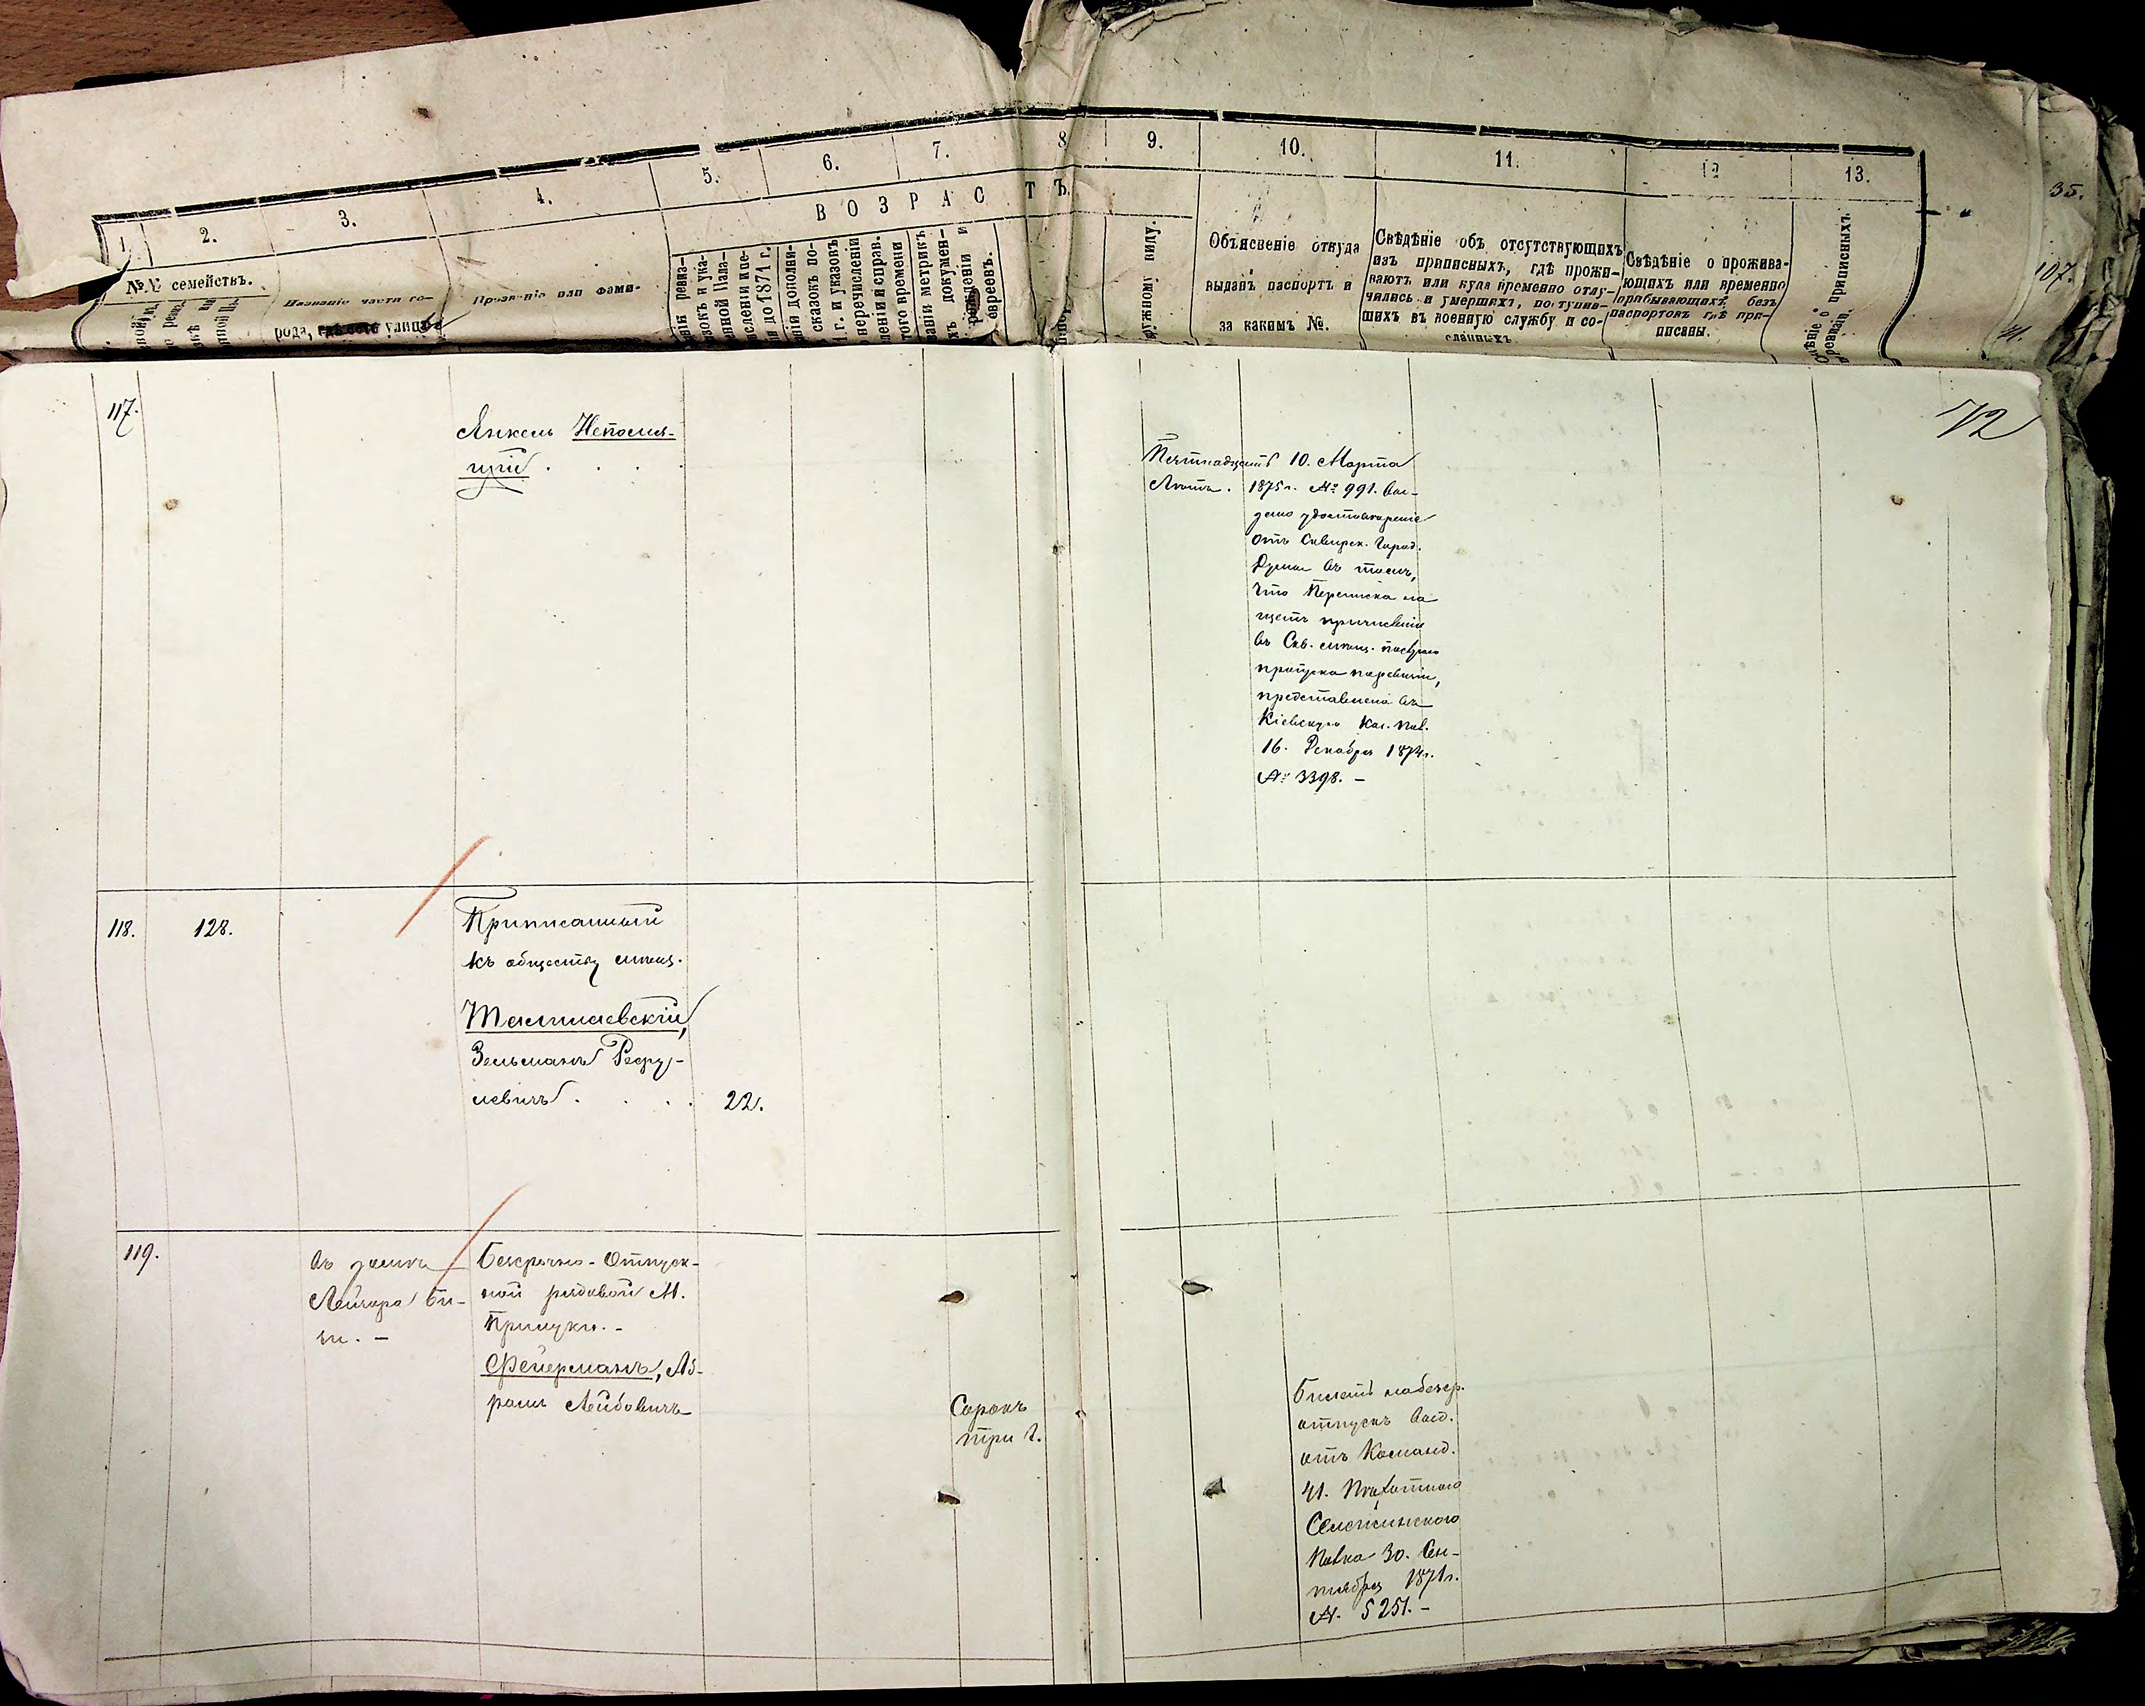 1.
2.
3.
4.
5.
6.
7.
8
9.
10.
11.
12
13.
35.
107.
ВОЗРАСТЪ.
№№ семействъ.
Названіе части го-
рода, улица
Прозваніе или фами-
Объясненіе откуда
выданъ паспортъ и
за какимъ №.
Свѣдѣніе объ отсутствующихъ
изъ приписныхъ, гдѣ прожи-
ваютъ или куда временно отлу-
чились и умершихъ, поступив-
шихъ въ военную службу и со-
сланныхъ
Свѣдѣніе о прожива-
ющихъ или временно
пребывающихъ, безъ
паспортовъ гдѣ при-
писаны.
72
117.
Янкель Непомня-
щій . . . .
Пятнадцать
Лѣтъ.
10. Марта
1875 г. № 991. Вы-
дано удостовѣреніе
отъ Сквирск. Город.
Думы въ томъ,
что Переписка на
щетъ причисленія
въ Скв. мѣщ.
пропуска по ревизіи,
представлена въ
Кіевскую Каз. Пал.
16. Декабря 1874 г.
№ 3398. –
118.
128.
Приписанный
къ обществу мѣщ.
Зельманъ
левичъ . . . .
22.
119.
въ домѣ
Лейзора Би-
Безсрочно-Отпуск-
ной рядовой М.
Прилуки. –
Фейерманъ, Аб-
рамъ Лейбовичъ
Сорокъ
три г.
Билетъ на безср.
отпускъ выд.
отъ Команд.
41. Пѣхотнаго
Селенгинскаго
Полка 30. Сен-
тября 1871 г.
№. 5251. –